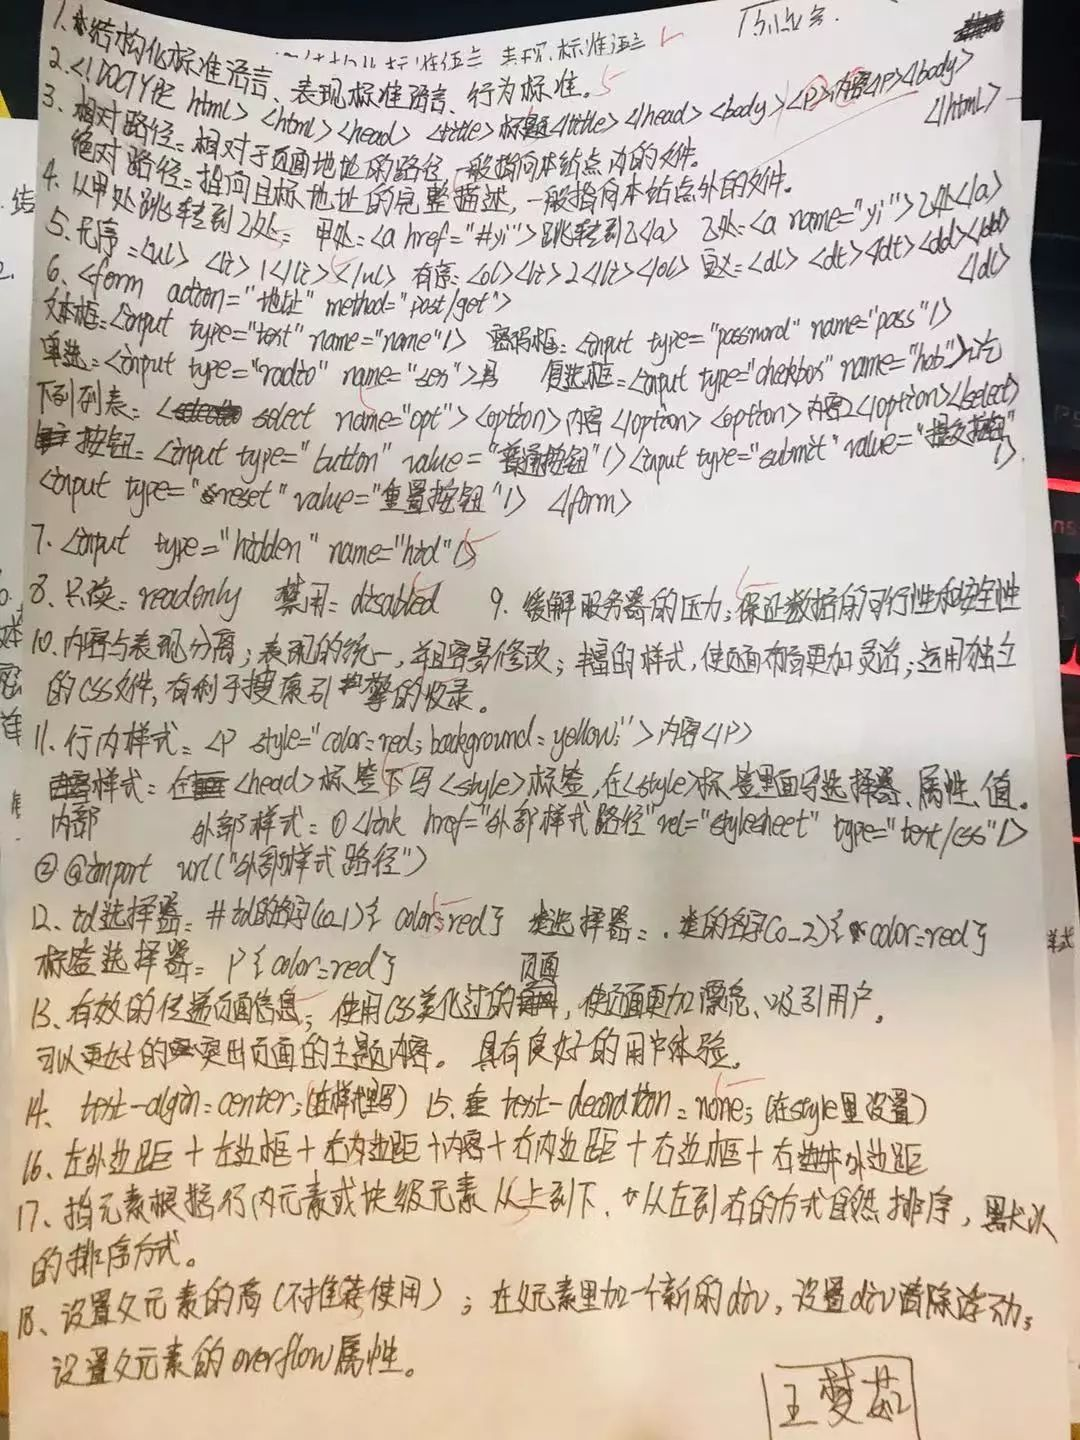 1、结构化标准语言、表现标准语言、行为标准。
2、<!DOCTYPE html> <html> <head> <title>标题</title> </head> <body> <P>内容</P></body>
</html>
3、相对路径：相对于页面地址的路径，一般指向本站点内的文件。
绝对路径：指向目标地址的完整描述，一般指向本站点外的文件。
4、从甲处跳转到乙处： 甲处：<a href="#yi">跳转到乙</a> 乙处：<a name="yi">乙处</a>
5、无序：<ul> <li>1</li></ul> 有序：<ol><li>2</li></ol> 定义：<dl> <dt></dt><dd></dd>
</dl>
6、<form action="地址" method="post/get">
文本框：<input type="text" name="name"/> 密码框：<input type="password" name="pass"/>
单选：<input type="radio" name="sex">男 复选框：<input type="checkbox" name="hob">
下列列表： select name="opt"><option>内容</option><option>内容2</option></select>
按钮：<input type="button" value="普通按钮"/><input type="submit" value="提交按钮"/>
<input type="reset" value="重置按钮"/> </form>
7、<input type="hidden" name="hid"/>
8、只读：readonly 禁用：disabled 9、缓解服务器的压力；保证数据的可行性和安全性
10、内容与表现分离；表现的统一，并且容易修改；丰富的样式，使页面布局更加灵活；运用独立
的CSS文件，有利于搜索引擎的收录。
11、行内样式：<P style="color:red; background:yellow;">内容</P>
内部样式：在<head>标签下写<style>标签，在<style>标签里面写选择器、属性、值。
外部样式：①<link href="外部样式路径" rel="stylesheet" type="text/css"/>
②@import url("外部样式路径")
12、id选择器：#id的名字(o_1){color:red} 类选择器：.类的名字(o_2){color:red}
标签选择器：P{color:red}
13、有效的传递页面信息；使用CSS美化过的页面，使页面更加漂亮、吸引用户。
可以更好的突出页面的主题内容。具有良好的用户体验。
14、text-algin:center;(在样式里写) 15、text-decoration:none;(在style里设置)
16、左外边距+左边框+左内边距+内容+右内边距+右边框+右外边距
17、指元素根据行内元素或块级元素从上到下、从左到右的方式自然排序，默认
的排序方式。
18、设置父元素的高(不推荐使用)；在父元素里加一个新的div，设置div清除浮动；
设置父元素的overflow属性。
王梦茹